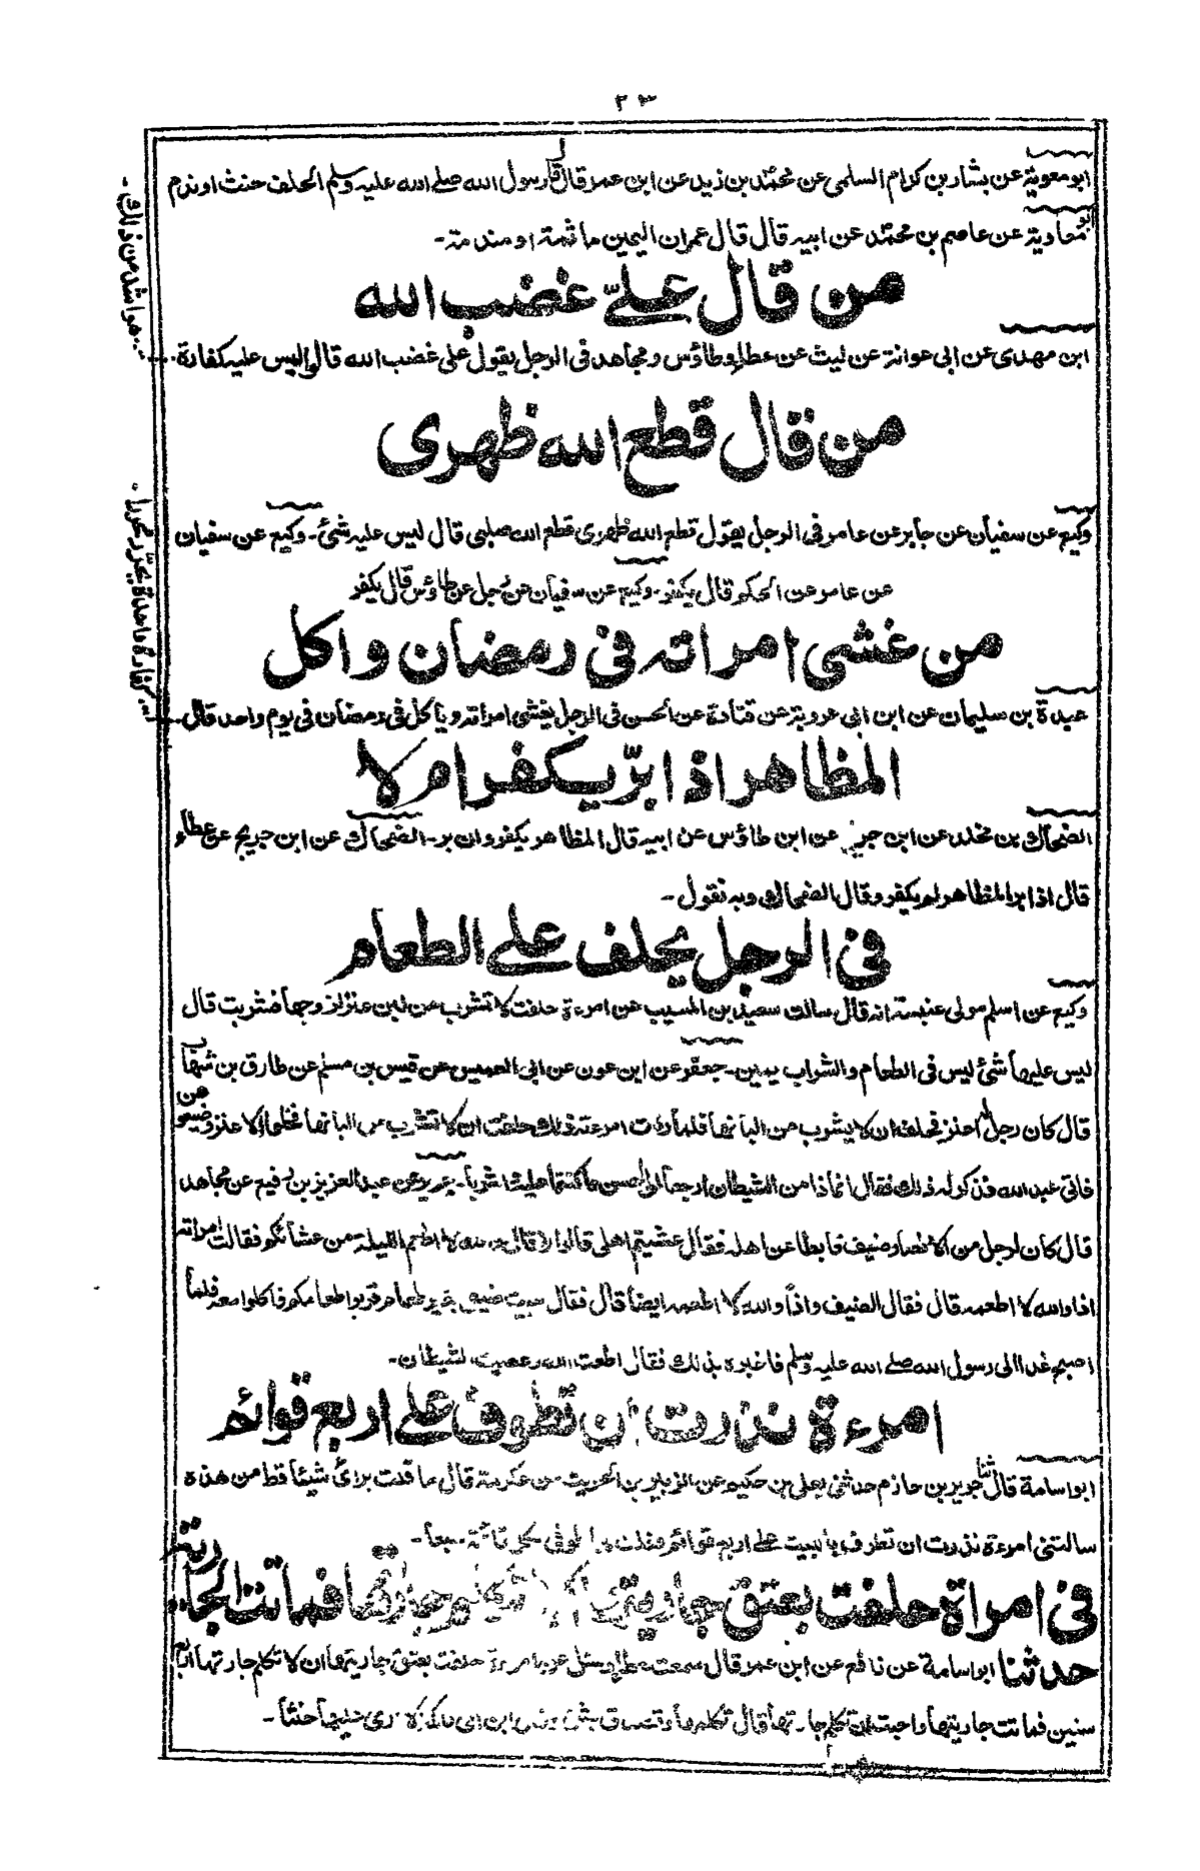 ٢٣
ابو معوية عن بشار بن كرام السلمى عن محمد بن زيد عن ابن عمر قال قال رسول الله صلے الله عليه وسلم الحلف حنث او ندم
ابو معاوية عن عاصم بن محمد عن ابيه قال قال عمران اليمين ماثمة او مندمة ـ
من قال علےّ غضب الله
ابن مهدى عن ابى عوانة عن ليث عن عطاء وطاؤس ومجاهد فى الرجل يقول على غضب الله قال اليس عليه كفارة ...
... هو اشد من ذلك ـ
من قال قطع الله ظهرى
وكيع عن سفيان عن جابر عن عامر فى الرجل يقول قطع الله ظهرى قطع الله صلبى قال ليس عليه شئ ـ وكيع عن سفيان
عن عامر عن الحكم قال يكفر ـ وكيع عن سفيان عن رجل عن طاؤس قال يكفر
من غشى امراته فى رمضان واكل
عبدة بن سليمان عن ابن ابى عروبة عن قتادة عن الحسن فى الرجل يغشى امراته وياكل فى رمضان فى يوم واحد قال ...
... كفارة واحدة يحرّر محررا ـ
المظاهر اذا برّ يكفر ام لا
الضحاك بن مخلد عن ابن عن ابن طاؤس عن ابيه قال المظاهر يكفر وان بر ـ الضحاك عن ابن جريج عن عطاء
قال اذا بر المظاهر لم يكفر وقال الضحاك وبه نقول ـ
فى الرجل يحلف علے الطعام
وكيع عن اسلم مولى عنبسة انه قال سالت سعيد بن المسيب عن امرءة حلفت لا تشرب من لبن عنز لزوجها فشربت قال
ليس عليها شئ ليس فى الطعام والشراب يمين ـ جعفر عن ابن عون عن ابى العميس عن قيس بن مسلم عن طارق بن شهاب
قال كان رجل له اعنز فحلف ان لا يشرب من البانها فلما رات امرءته ذلك حلفت ان لا تشرب من البانها فخلوا الاعنز وضيعو
فاتى عبد الله فذكر له ذلك فقال انما ذا من الشيطان ارجعا الى احسن ما كنتما عليه اشربا ـ جرير عن عبد العزيز بن رفيع عن مجاهد
قال كان لرجل من الانصار ضيف فابطا عن اهله فقال عشيتم اهلى قالوا لا قال والله لا اطعم الليلة من عشائكم فقالت امراته
اذا والله لا اطعمه قال فقال الضيف واذاً والله لا اطعمه ايضا قال فقال يبيت ضيفى بغير طعام قربوا طعامكم فاكلوا معه فلما
اصبح غدا الى رسول الله صلے الله عليه وسلم فاخبره بذلك فقال اطعت الله وعصيت الشيطان ـ
امرءة نذرت ان تطوف علے اربع قوائم
ابو اسامة قال ثنا جرير بن حازم حدثنى يعلى بن حكيم عن الزبير بن الخريت عن عكرمة قال ما قلت برائ شيئا قط من هذه
سالتنى امرءة نذرت ان تطوف بالبيت علے اربع قوائم فقلت لها طوفى لكل قائمة سبعا ـ
فى امراة حلفت بعتق جاريتها فماتت الجارية
حدثنا ابو اسامة عن نافع عن ابن عمر قال سمعت عطاء وسئل عن امرءة حلفت بعتق جاريتها ان لا تكلم جارتها اربع
سنين فماتت جاريتها واحبت ان تكلم جارتها قال تكلمها وتصدق بشئ